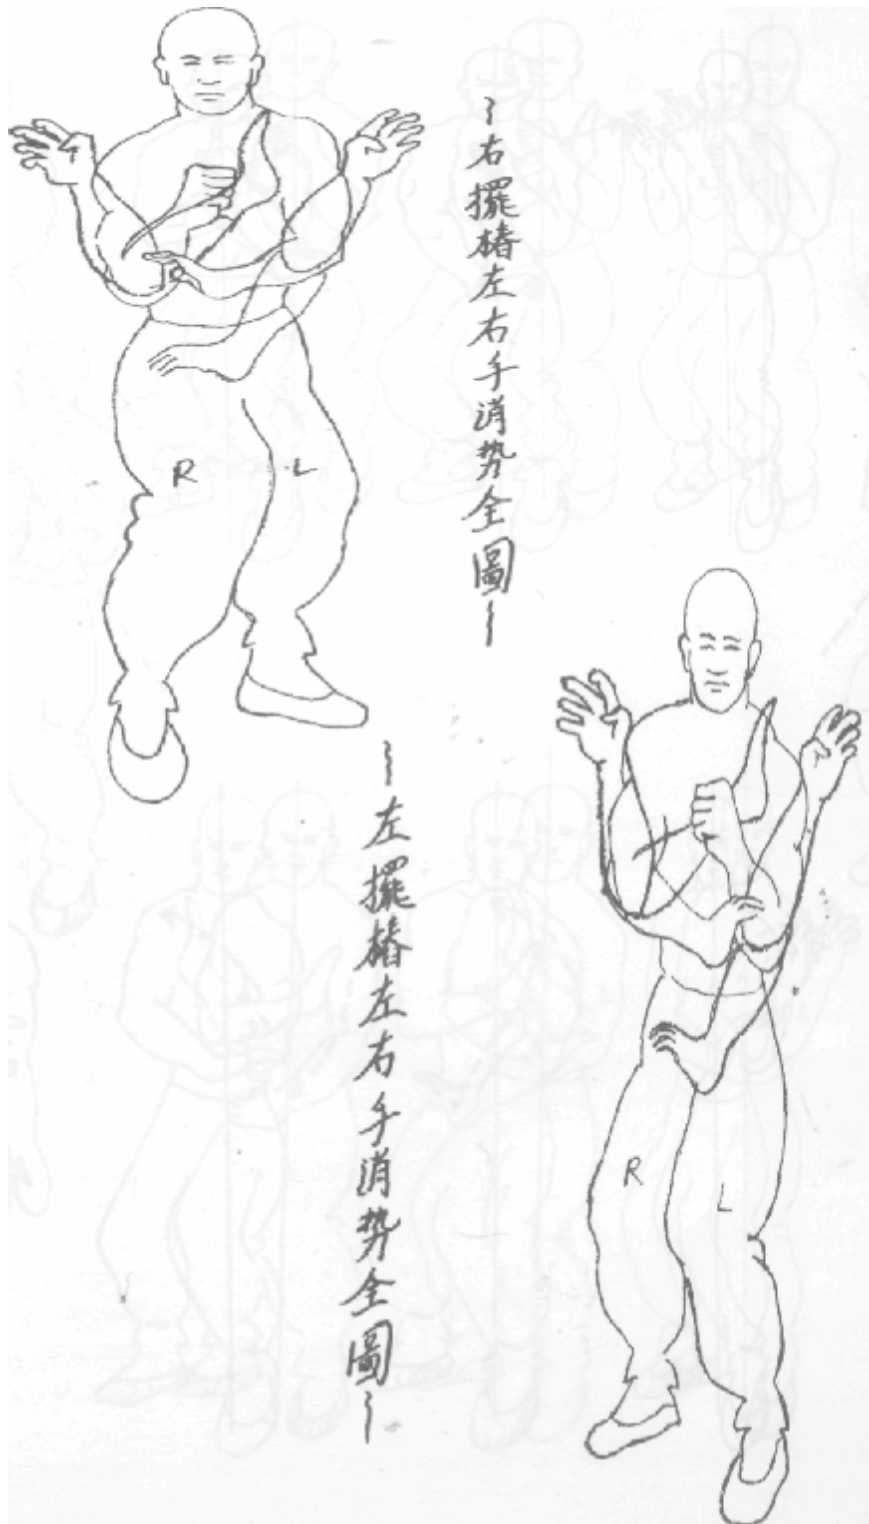 ~右擺樁左右手消势全圖~
R L
~左擺樁左右手消势全圖~
R L